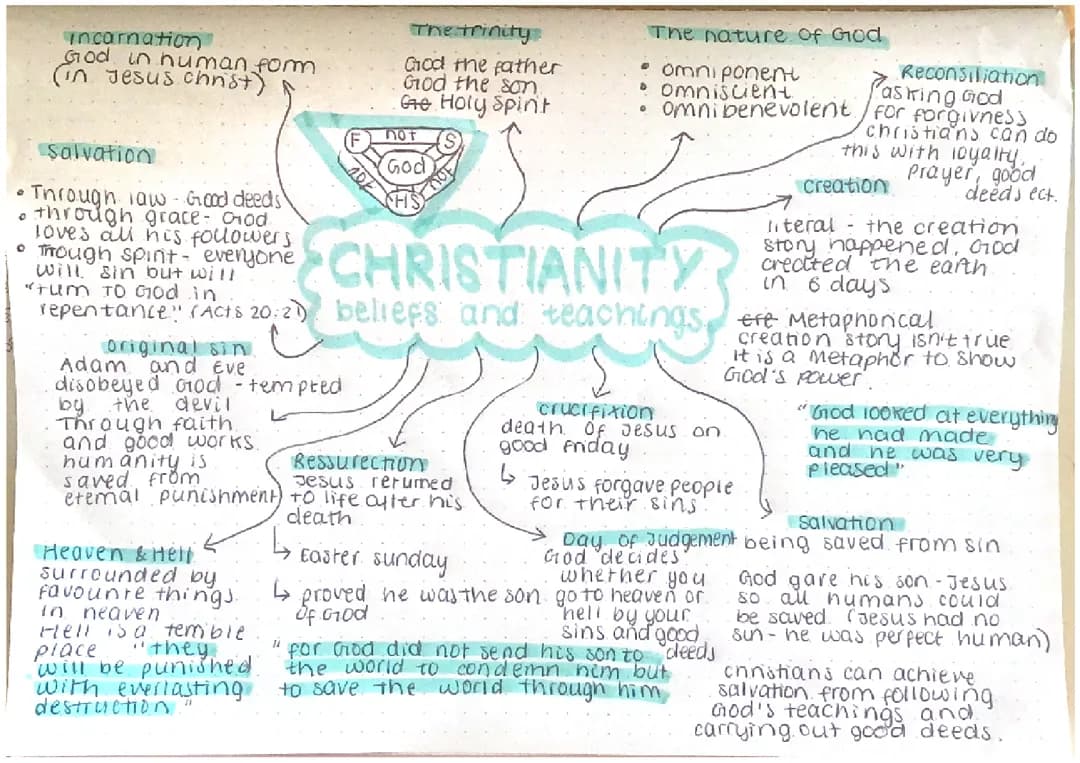 incarnation
God in human form
(in Jesus christ)
The trinity
God the father
God the son
Gre Holy Spirit
The nature of God
• omniponent
• omniscient
• omnibenevolent
Reconsiliation
asking God
for forgivness
christians can do
this with loyalty,
prayer, good
deeds ect.
F not S
God
not not
HS
salvation
• Through law - Good deeds
• through grace - God
loves all his followers
• Through spirit - everyone
will sin but will
"turn TO God in
repentance" (Acts 20:21)
creation
literal - the creation
story happened, God
created the earth
in 6 days
cre Metaphorical
creation story isn't true
it is a metaphor to show
God's power.
"God looked at everything
he had made
and he was very
pleased"
CHRISTIANITY
beliefs and teachings
original sin
Adam and Eve
disobeyed God - tempted
by the devil
Through faith
and good works
humanity is
saved from
eternal punishment
Ressurection
Jesus returned
to life after his
death
↳ Easter sunday
↳ proved he was the son
of God
"for God did not send his son to
the world to condemn him but
to save the world through him
crucifixion
death of Jesus on
good friday
↳ Jesus forgave people
for their sins
Day of Judgement
God decides
whether you
go to heaven or
hell by your
sins and good
deeds
salvation
being saved from sin
God gave his son - Jesus
so all humans could
be saved. (Jesus had no
sin - he was perfect human)
christians can achieve
salvation from following
God's teachings and
carrying out good deeds.
Heaven & Hell
surrounded by
favourite things
in heaven
Hell is a terrible
place "they
will be punished
with everlasting
destruction"